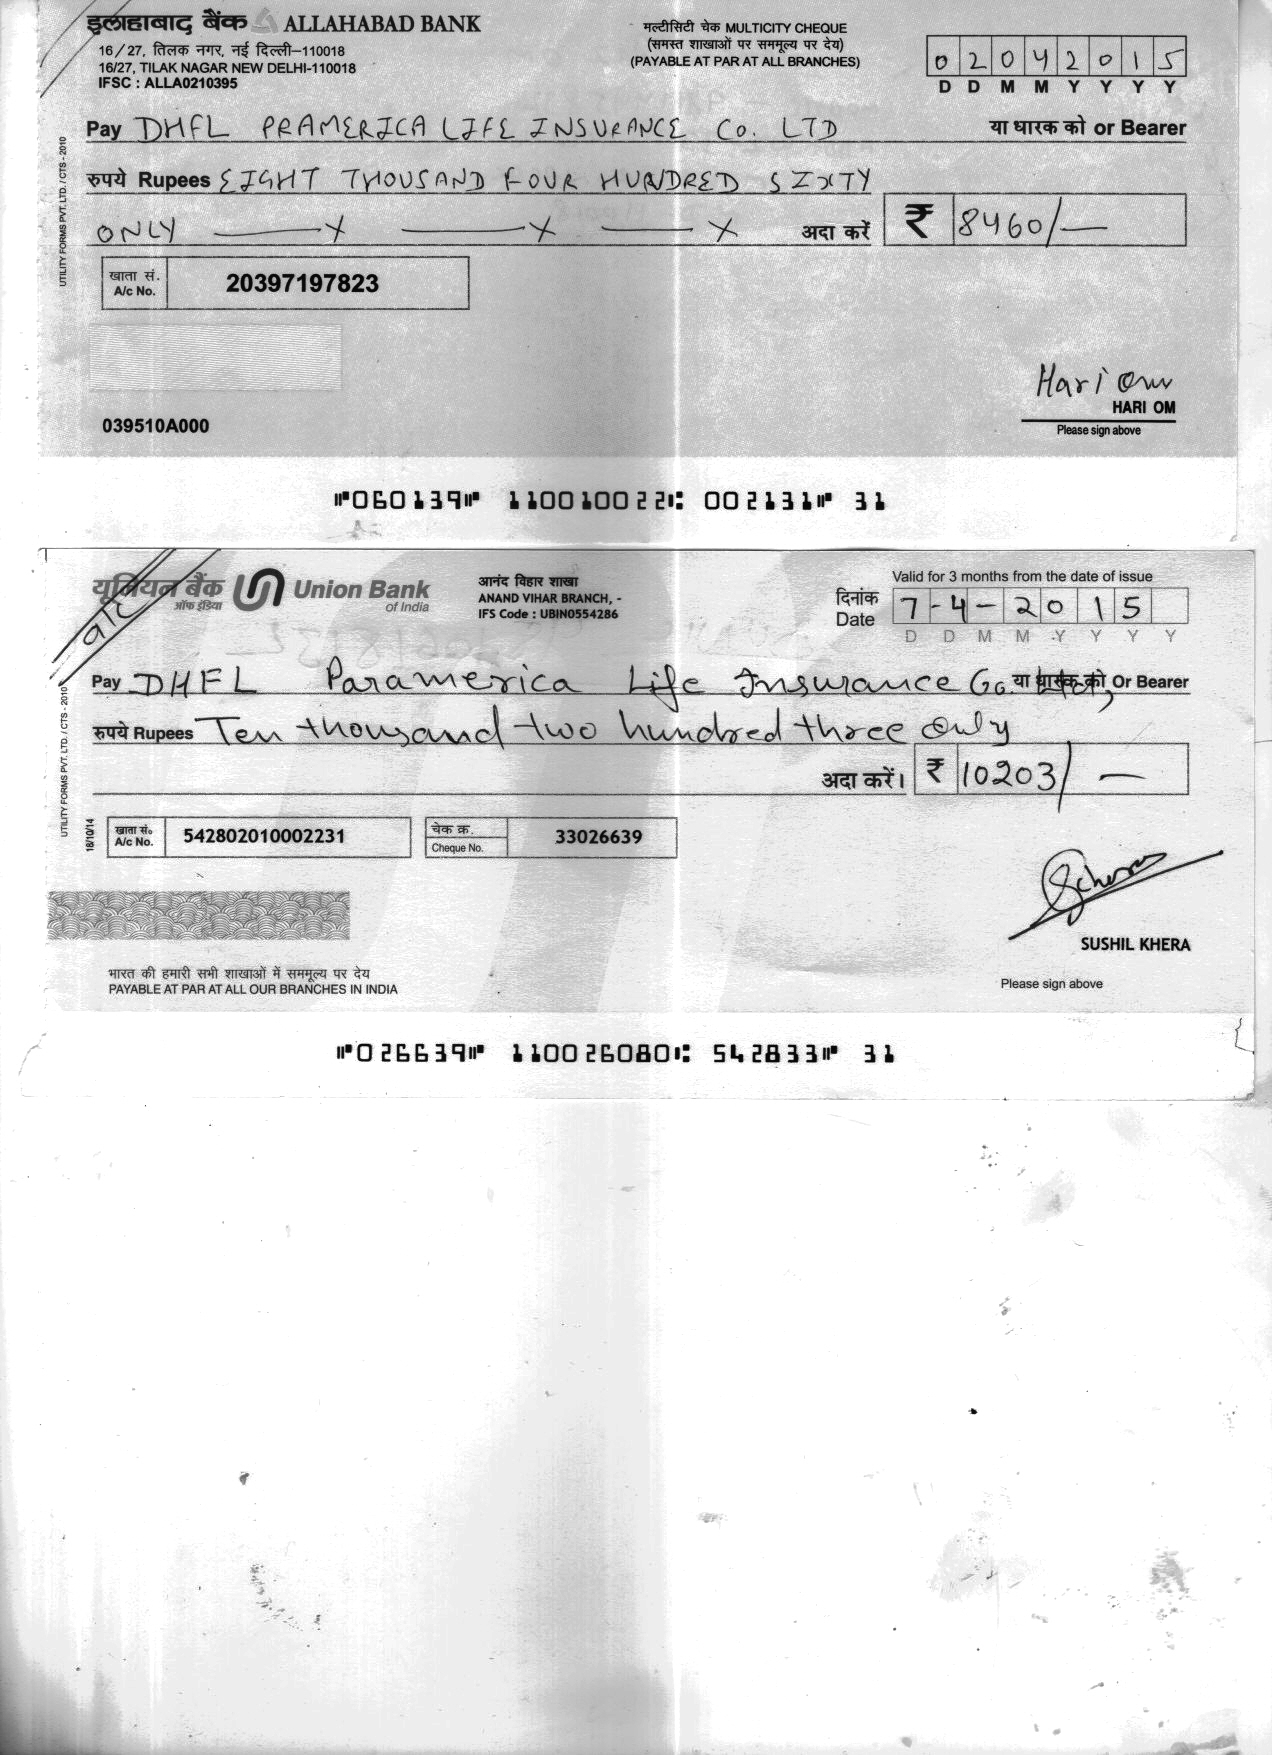 इलाहाबाद बैंक ALLAHABAD BANK
16/27, तिलक नगर, नई दिल्ली–110018
16/27, TILAK NAGAR NEW DELHI-110018
IFSC : ALLA0210395
मल्टीसिटी चेक MULTICITY CHEQUE
(समस्त शाखाओं पर सममूल्य पर देय)
(PAYABLE AT PAR AT ALL BRANCHES)
0 2 0 4 2 0 1 5
D D M M Y Y Y Y
Pay DHFL PRAMERICA LIFE INSURANCE Co. LTD या धारक को or Bearer
रुपये Rupees EIGHT THOUSAND FOUR HUNDRED SIXTY
ONLY ——x ——x ——x अदा करें ₹ 8460/—
खाता सं. A/c No. 20397197823
UTILITY FORMS PVT. LTD. / CTS - 2010
Hari Om
HARI OM
039510A000
Please sign above
⑈060139⑈ 110010022⑆ 002131⑈ 31
यूनियन बैंक ऑफ इंडिया Union Bank of India
आनंद विहार शाखा
ANAND VIHAR BRANCH, -
IFS Code : UBIN0554286
Valid for 3 months from the date of issue
दिनांक Date 7-4-2015
D D M M Y Y Y Y
Pay DHFL Paramerica Life Insurance Co. Ltd, या धारक को Or Bearer
रुपये Rupees Ten thousand two hundred three only
अदा करें। ₹ 10203/—
UTILITY FORMS PVT. LTD. / CTS - 2010
18/10/14
खाता सं० A/c No. 542802010002231
चेक क्र. Cheque No. 33026639
SUSHIL KHERA
भारत की हमारी सभी शाखाओं में सममूल्य पर देय
PAYABLE AT PAR AT ALL OUR BRANCHES IN INDIA
Please sign above
⑈026639⑈ 110026080⑆ 542833⑈ 31